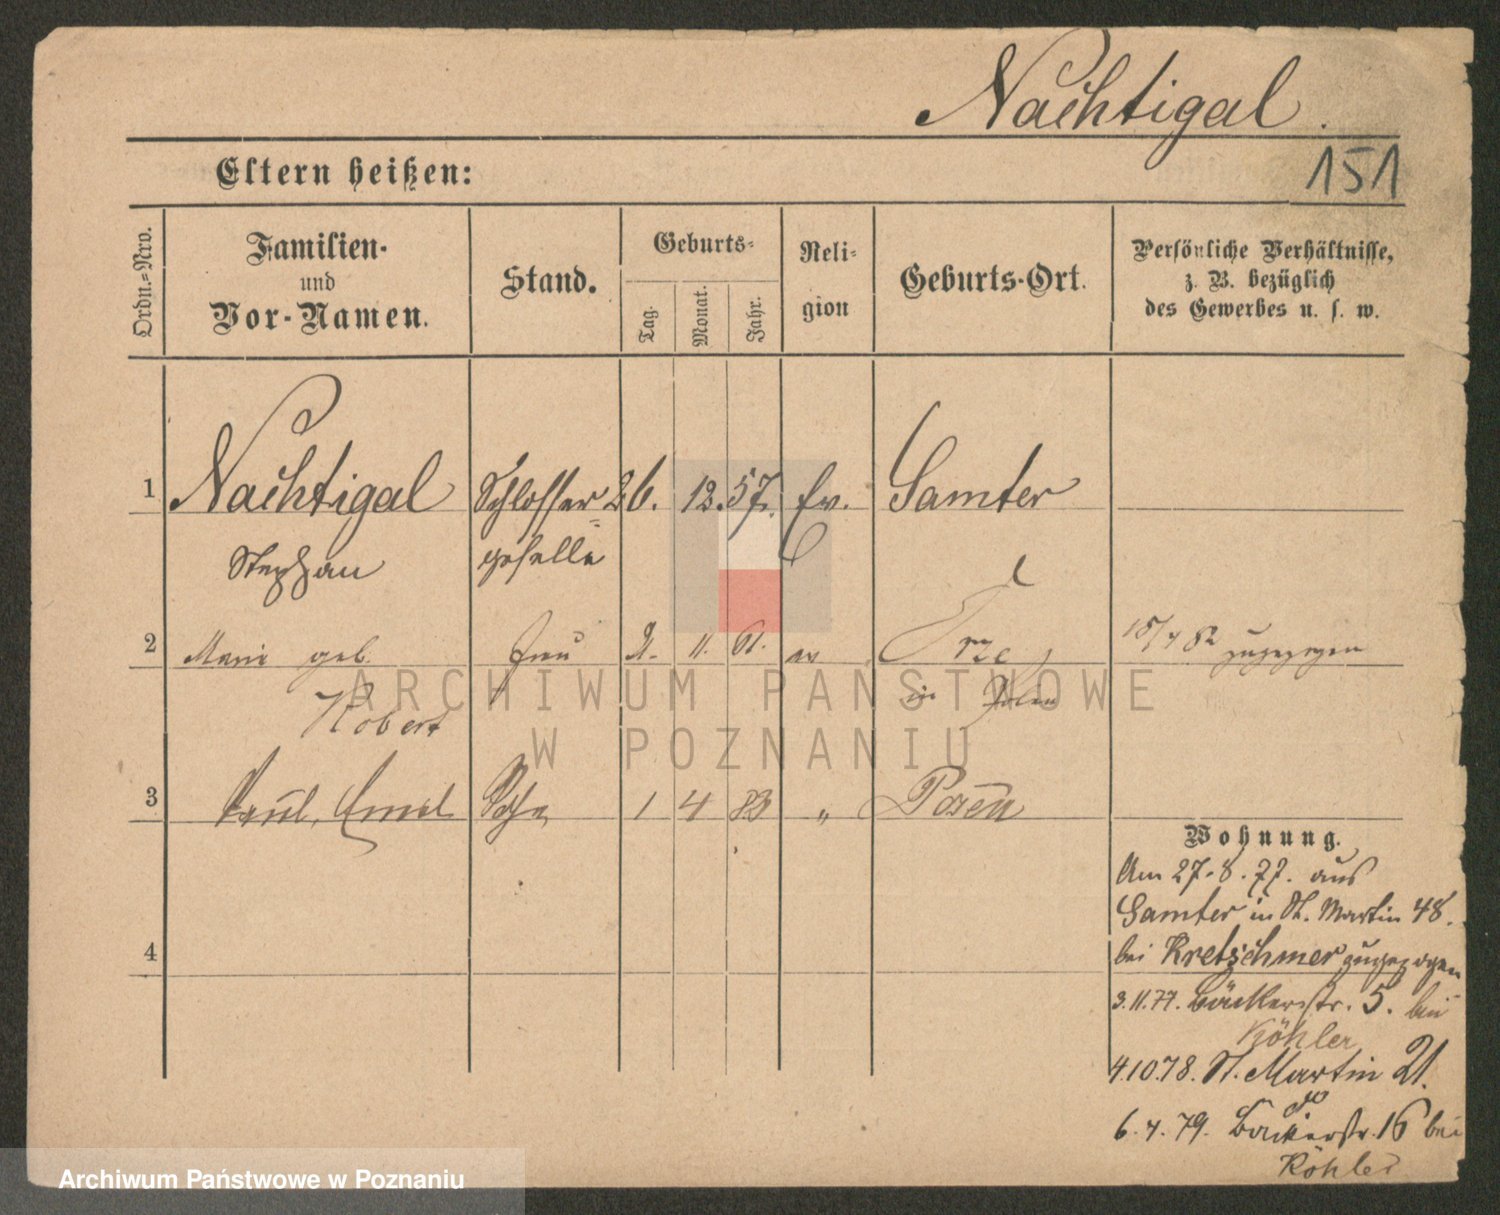 Nachtigal.
151
Eltern heißen:
Ordn.=Nro.
Familien-
und
Vor-Namen.
Stand.
Geburts-
Tag.
Monat.
Jahr.
Reli-
gion
Geburts-Ort.
Persönliche Verhältnisse,
z. B. bezüglich
des Gewerbes u. s. w.
1 Nachtigal Schlosser= 26. 12. 57. Ev. Samter
Stephan geselle
2 Marie geb. Frau 11. 61. ev 82 zugezogen
Robert in Polen
3 Paul, Emil Sohn 1 4 83 " Posen
4
Wohnung.
Am 27.8.77. aus
Samter in St. Martin 48.
bei Kretschmer zugezogen
3.11.77. Bäckerstr. 5. bei
Köhler
4.10.78. St. Martin 21.
6.4.79. Bäckerstr. 16 bei
Köhler
ARCHIWUM PAŃSTWOWE
W POZNANIU
Archiwum Państwowe w Poznaniu